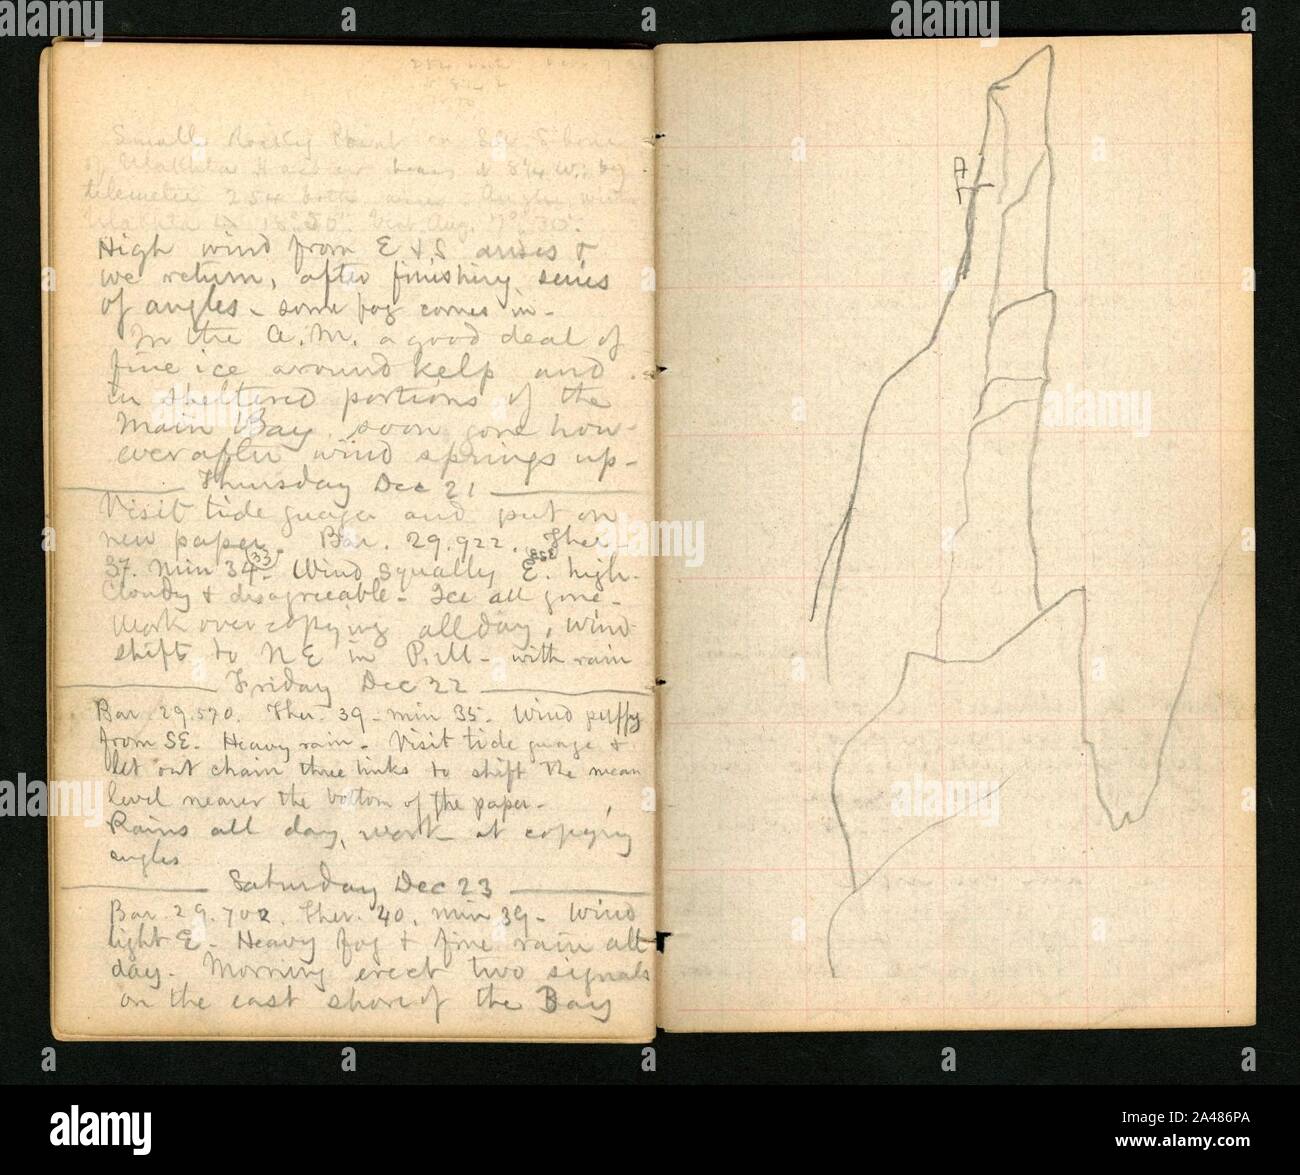 Small Rocky Point on
254 both
High wind from E & S arises &
we return, after finishing series
of angles - some fog comes in -
In the A.M. a good deal of
fine ice around kelp and
in sheltered portions of the
Main Bay, soon gone how-
ever after wind springs up -
Thursday Dec 21
Visit tide guage and put on
new paper. Bar. 29.922. Ther
37. Min 34 33 - Wind squally E. ESE high.
Cloudy & disagreeable - Ice all gone -
Work over copying all day, wind
shifts to NE in P.M - with rain
Friday Dec 22
Bar 29.570. Ther. 39 - min 35 - Wind puffy
from SE. Heavy rain - Visit tide guage &
let out chain three links to shift the mean
level nearer the bottom of the paper -
Rains all day, work at copying
angles
Saturday Dec 23
Bar 29.702. Ther. 40. min 39 - Wind
light E - Heavy fog & fine rain all
day - Morning erect two signals
on the east shore of the Bay
A
alamy
a
2A486PA
www.alamy.com